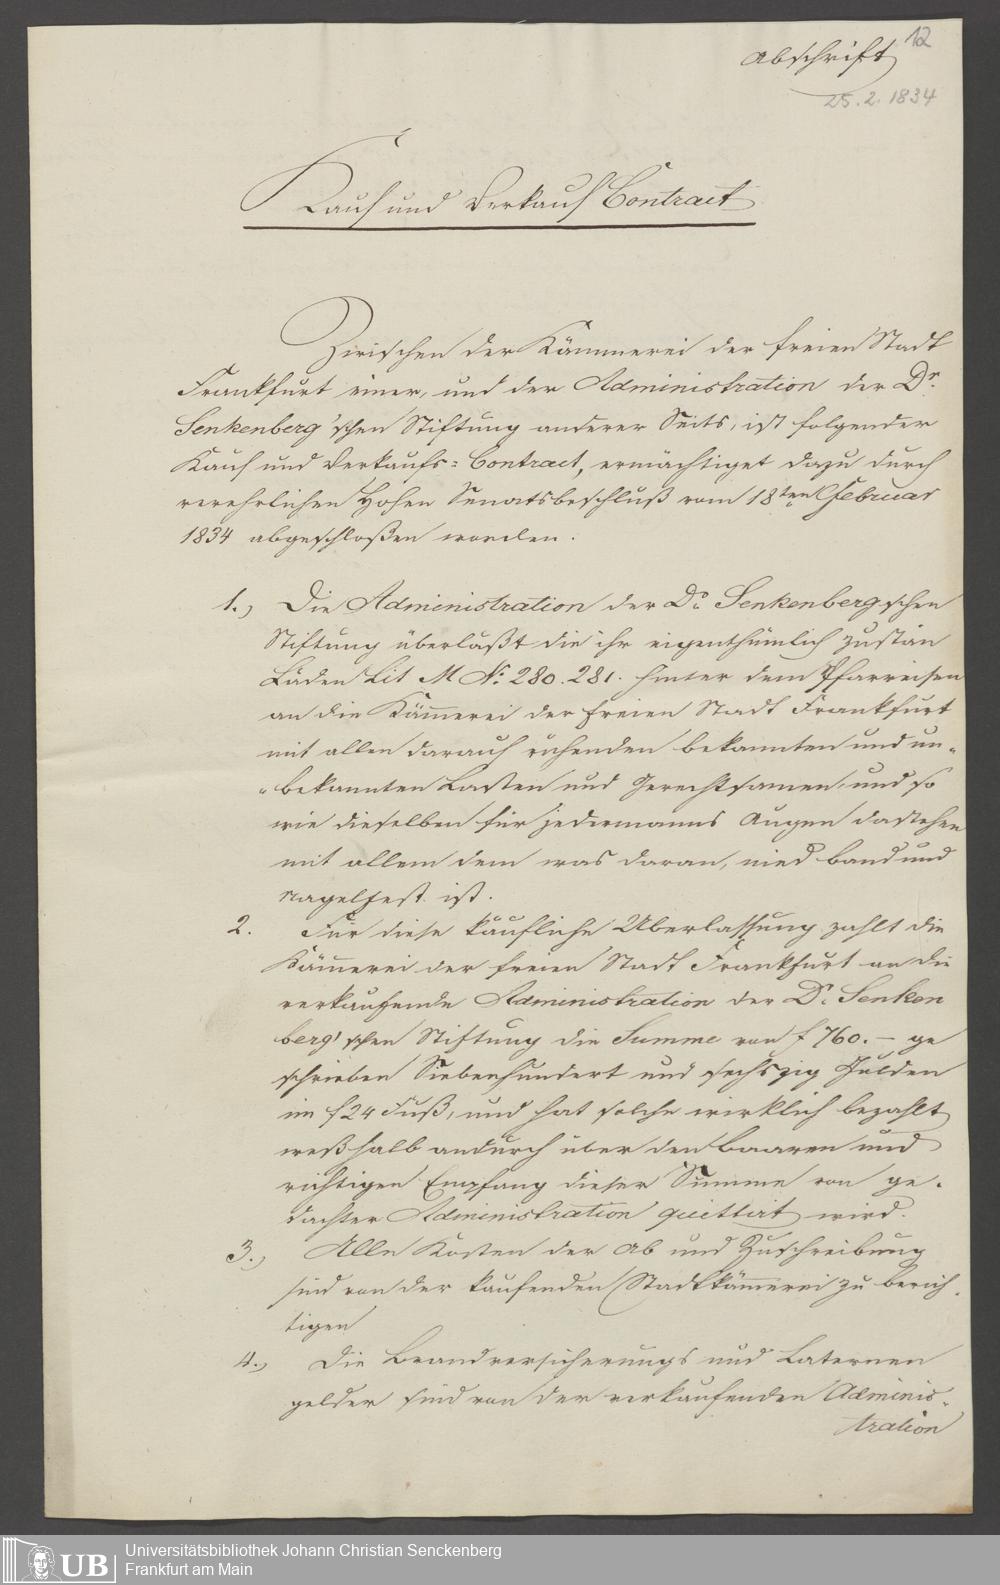 Abschrift 12
25.2.1834
Kauf und Verkauf Contract
Zwischen der Kämmerei der freien Stadt
Frankfurt einer, und der Administration der Dr.
Senkenberg'schen Stiftung anderer Seits, ist folgender
Kauf und Verkaufs= Contract, ermächtiget dazu durch
verehrlichen Hohen Senatsbeschluß vom 18ten Februar
1834 abgeschloßen worden.
1.) Die Administration der Dr. Senkenbergschen
Stiftung überläßt die ihr eigenthümlich zustän
Läden Lit M No. 280. 281. hinter dem Pfarreisen
an die Käm̄erei der freien Stadt Frankfurt
mit allen darauf ruhenden bekannten und un„
„bekannten Lasten und Gerechtsamen, und so
wie dieselben für jedermanns Augen dastehen
mit allem dem was daran, nied band und
nagelfest ist.
2. Für diese käufliche Uberlassung zahlt die
Käm̄erei der freien Stadt Frankfurt an die
verkaufende Administration der Dr. Senken
berg'schen Stiftung die Summe von f 760. – ge
schrieben Siebenhundert und sechszig Gulden
im f 24 Fuß, und hat solche wirklich bezahlt
weßhalb andurch über den baaren und
richtigen Empfang dieser Summe von ge.
dachter Administration quittirt wird.
3.) Alle Kosten der Ab und Zuschreibung
sind von der kaufenden Stadtkäm̄erei zu berich.
tigen
4.) Die Brandversicherungs und Laternen
gelder sind von der verkaufenden Adminis„
tration
UB
Universitätsbibliothek Johann Christian Senckenberg
Frankfurt am Main